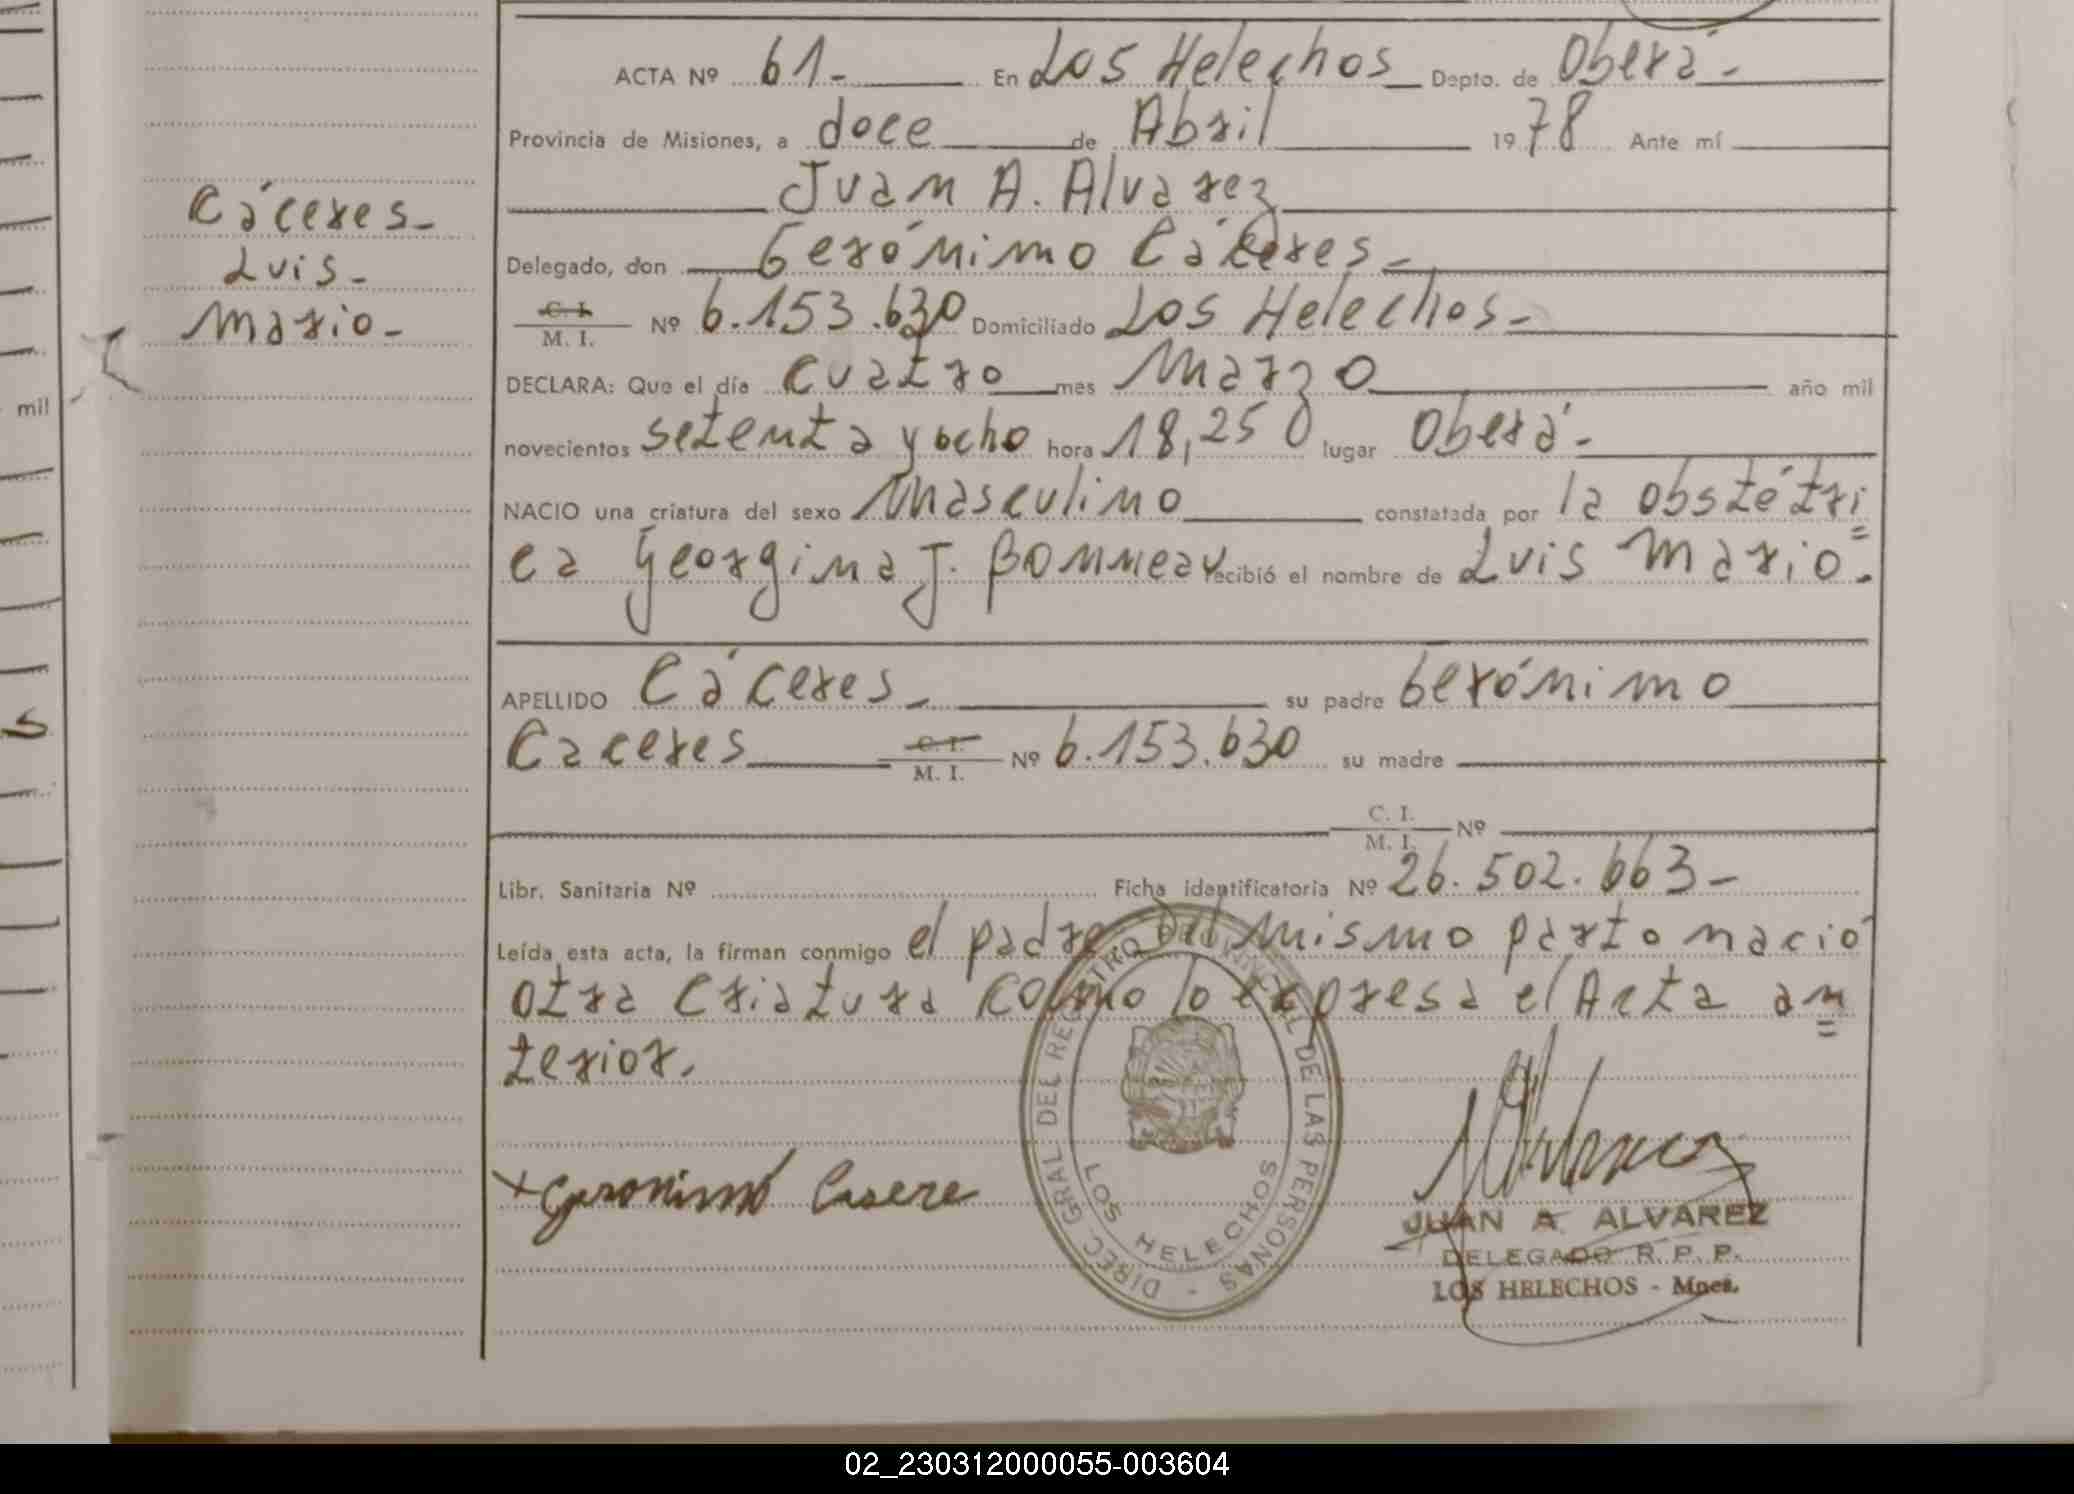 ACTA Nº 61- En Los Helechos Depto. de Oberá-
Provincia de Misiones, a doce de Abril 1978 Ante mí
Juan A. Alvarez
Delegado, don Gerónimo Cáceres-
C. I. / M. I. Nº 6.153.630 Domiciliado Los Helechos-
DECLARA: Que el día cuatro mes Marzo año mil
novecientos setenta y ocho hora 18,250 lugar Oberá-
NACIO una criatura del sexo Masculino constatada por la obstétri
ca Georgina J. Bonneau recibió el nombre de Luis Mario-
APELLIDO Cáceres- su padre Gerónimo
Caceres C. I. / M. I. Nº 6.153.630 su madre
C. I. / M. I. Nº
Libr. Sanitaria Nº Ficha identificatoria Nº 26.502.663-
Leída esta acta, la firman conmigo el padre del mismo parto nació
otra criatura como lo expresa el Acta an
terior.
Cáceres-
Luis-
Mario-
mil
s
+ Geronimo Casere
DIREC. GRAL DEL REGISTRO PROVINCIAL DE LAS PERSONAS -
LOS HELECHOS
JUAN A. ALVAREZ
DELEGADO R. P. P.
LOS HELECHOS - Mnes.
02_230312000055-003604